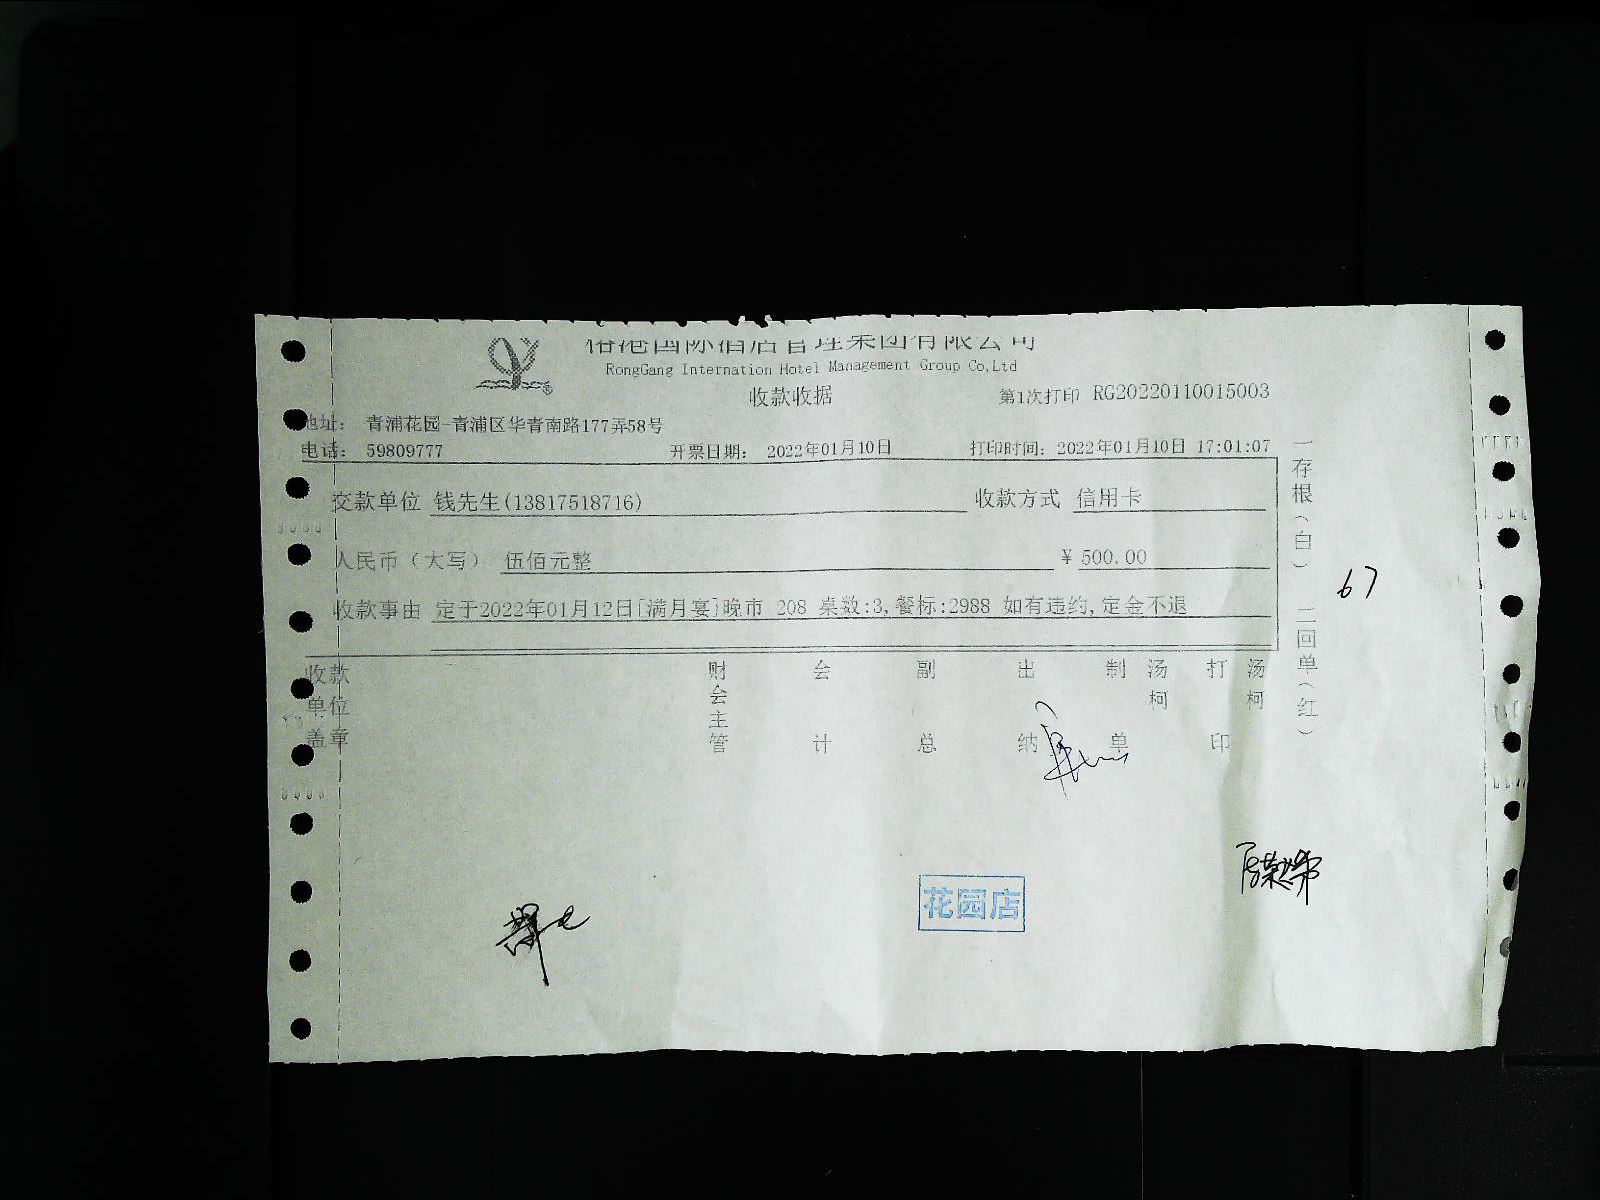 港国际酒店管理集团有限公司
RongGang Internation Hotel Management Group Co,Ltd
收款收据
第1次打印 RG20220110015003
地址: 青浦花园-青浦区华青南路177弄58号
电话: 59809777 开票日期: 2022年01月10日 打印时间: 2022年01月10日 17:01:07
交款单位 钱先生(13817518716) 收款方式 信用卡
人民币(大写) 伍佰元整 ¥ 500.00
收款事由 定于2022年01月12日[满月宴]晚市 208 桌数:3,餐标:2988 如有违约,定金不退
收款单位盖章 财会主管 会计 副总 出纳 制单 汤柯 打印 汤柯
一存根(白) 二回单(红)
67
花园店